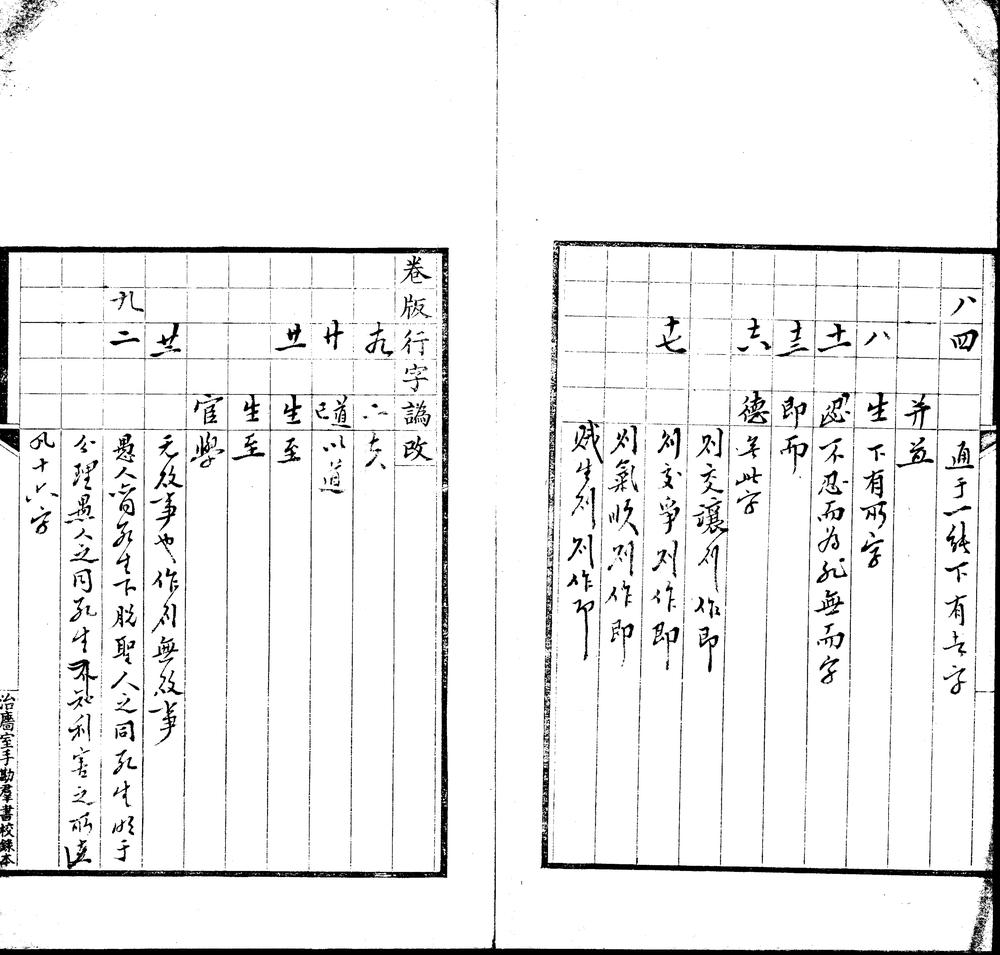 八 四 通于一然下有去字
并 並
八 生 下有所字
十一 忍 不忍而為非無而字
十三 即 而
十六 德 無此字
則交讓則作即
十七 則交爭則作即
則氣順則作即
賊生則則作即
卷版行字譌改
十九 亦
廿 道以道已
廿一 生 至
生 至
官 學
廿二 无故事也作則無故事
九 二 愚人之同死生下脫聖人之同死生明于
分理愚人之同死生不知利害之所在
凡十六字
治廧室手勘羣書校錄本